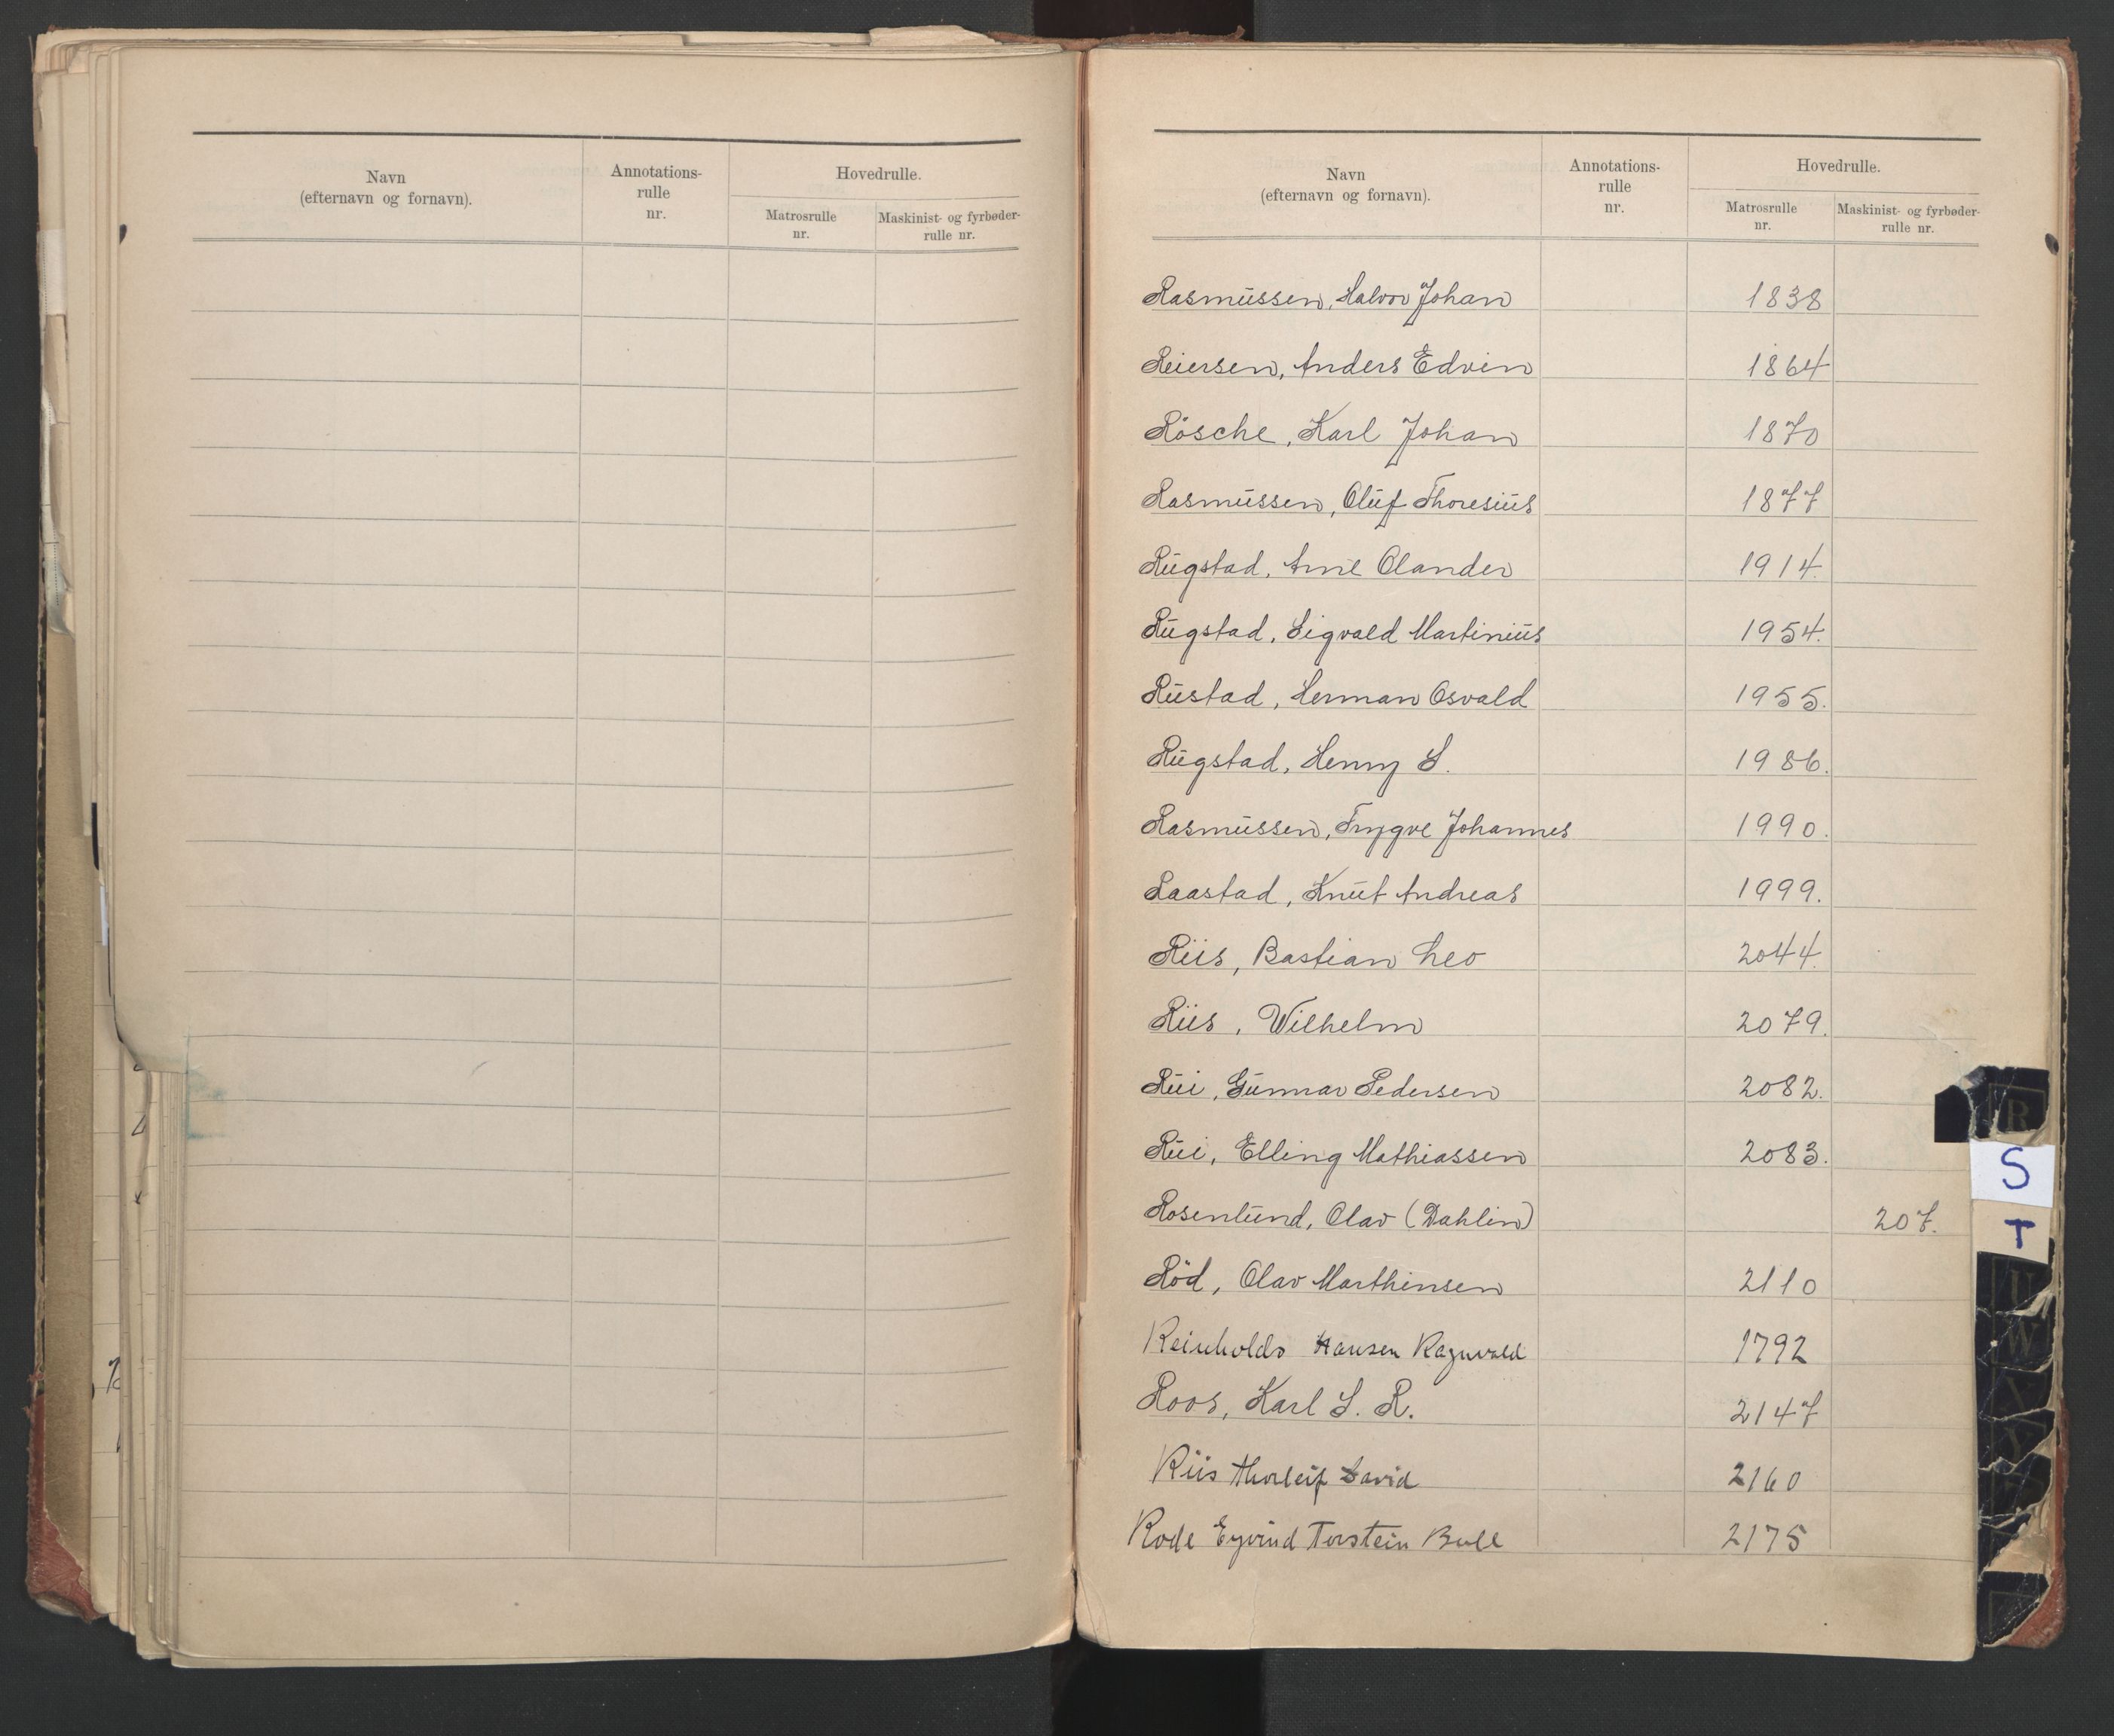 Navn
(efternavn og fornavn).
Annotations-
rulle
nr.
Hovedrulle.
Matrosrulle
nr.
Maskinist- og fyrbøder-
rulle nr.
Navn
(efternavn og fornavn).
Annotations-
rulle
nr.
Hovedrulle.
Matrosrulle
nr.
Maskinist- og fyrbøder-
rulle nr.
Rasmussen, Halvor Johan 1838
Reiersen, Anders Edvin 1864
Rösche, Karl Johan 1870
Rasmussen, Oluf Thoresius 1877
Rugstad, Arne Olander 1914.
Rugstad, Sigvald Martinius 1954.
Rustad, Herman Osvald 1955.
Rugstad, Henry S. 1986.
Rasmussen, Trygve Johannes 1990.
Raastad, Knut Andreas 1999.
Riis, Bastian Leo 2044.
Riis, Wilhelm 2079.
Rui, Gunnar Pedersen 2082.
Rui, Elling Mathiassen 2083.
Rosenlund, Olav (Dahlin) 207.
Röd, Olav Marthinsen 2110
Reinholdo Hansen Ragnvald 1792
Roos, Karl S. R. 2147
Riis Thorleif David 2160
Rode Eyvind Torstein Bull 2175
R
S
T
U
W
X
Y